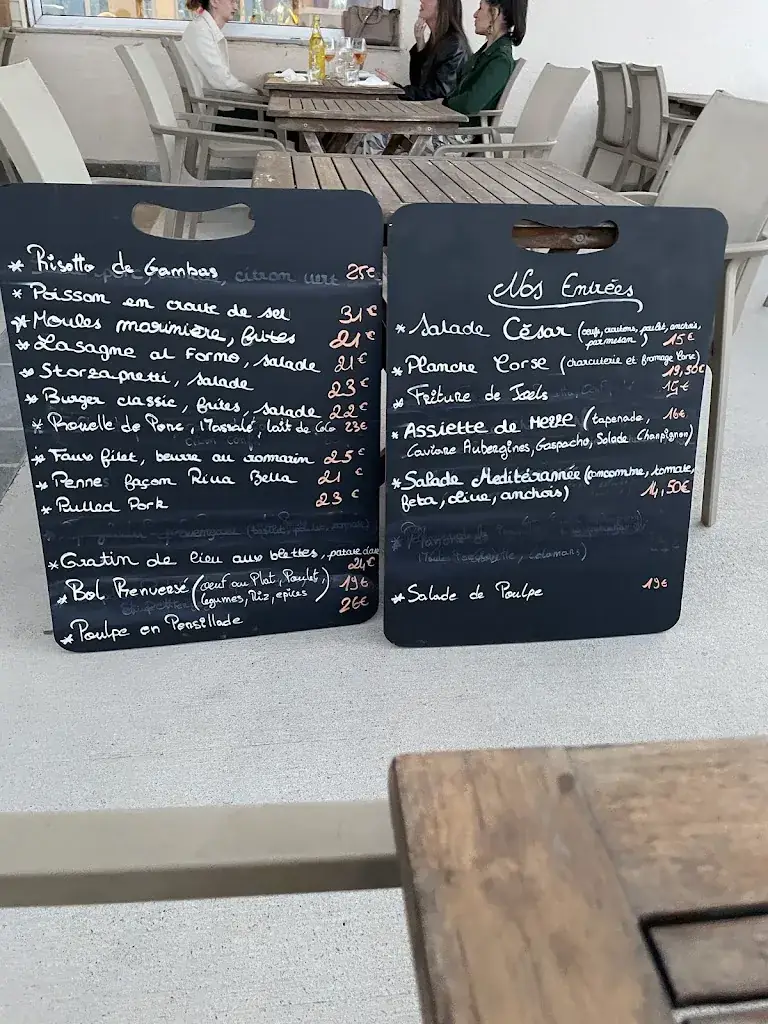 * Risotto de Gambas 25€
* Poisson en croute de sel 31€
* Moules marinière, frites 21€
* Lasagne al Forno, salade 21€
* Storzapretti, salade 23€
* Burger classic, frites, salade 22€
* Rouelle de Porc, Massalé, lait de CoCo 23€
* Faux filet, beurre au romarin 25€
* Penne façon Riva Bella 21€
* Pulled Pork 23€
* Gratin de lieu aux blettes, patate douce
24€
* Bol Renversé (oeuf au Plat, Poulet, 19€
légumes, Riz, epices)
* Poulpe en Persillade 26€
Nos Entrées
* Salade César (oeuf, croutons, poulet, anchois,
parmesan) 15€
* Planche Corse (charcuterie et fromage Corse)
19,50€
* Friture de 15€
* Assiette de (tapenade, 16€
Caviare Aubergines, Gaspacho, Salade Champignon)
* Salade Meditérannée (concombre, tomate,
feta, olive, anchois) 14,50€
* Salade de Poulpe 19€